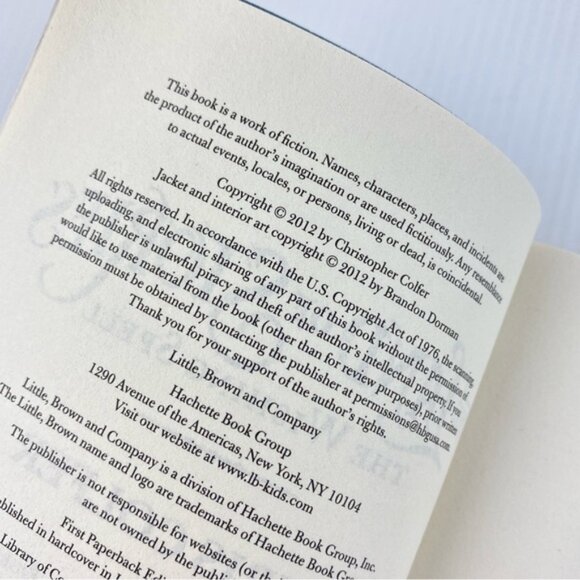 This book is a work of fiction. Names, characters, places, and incidents are
the product of the author's imagination or are used fictitiously. Any resemblance
to actual events, locales, or persons, living or dead, is coincidental.
Copyright © 2012 by Christopher Colfer
Jacket and interior art copyright © 2012 by Brandon Dorman
All rights reserved. In accordance with the U.S. Copyright Act of 1976, the scanning,
uploading, and electronic sharing of any part of this book without the permission of
the publisher is unlawful piracy and theft of the author's intellectual property. If you
would like to use material from the book (other than for review purposes), prior written
permission must be obtained by contacting the publisher at permissions@hbgusa.com.
Thank you for your support of the author's rights.
Little, Brown and Company
Hachette Book Group
1290 Avenue of the Americas, New York, NY 10104
Visit our website at www.lb-kids.com
Little, Brown and Company is a division of Hachette Book Group, Inc.
The Little, Brown name and logo are trademarks of Hachette Book Group, Inc.
The publisher is not responsible for websites (or the
are not owned by the publisher.
First Paperback Edi
published in hardcover in
Library of Co
THE WISHING SPELL